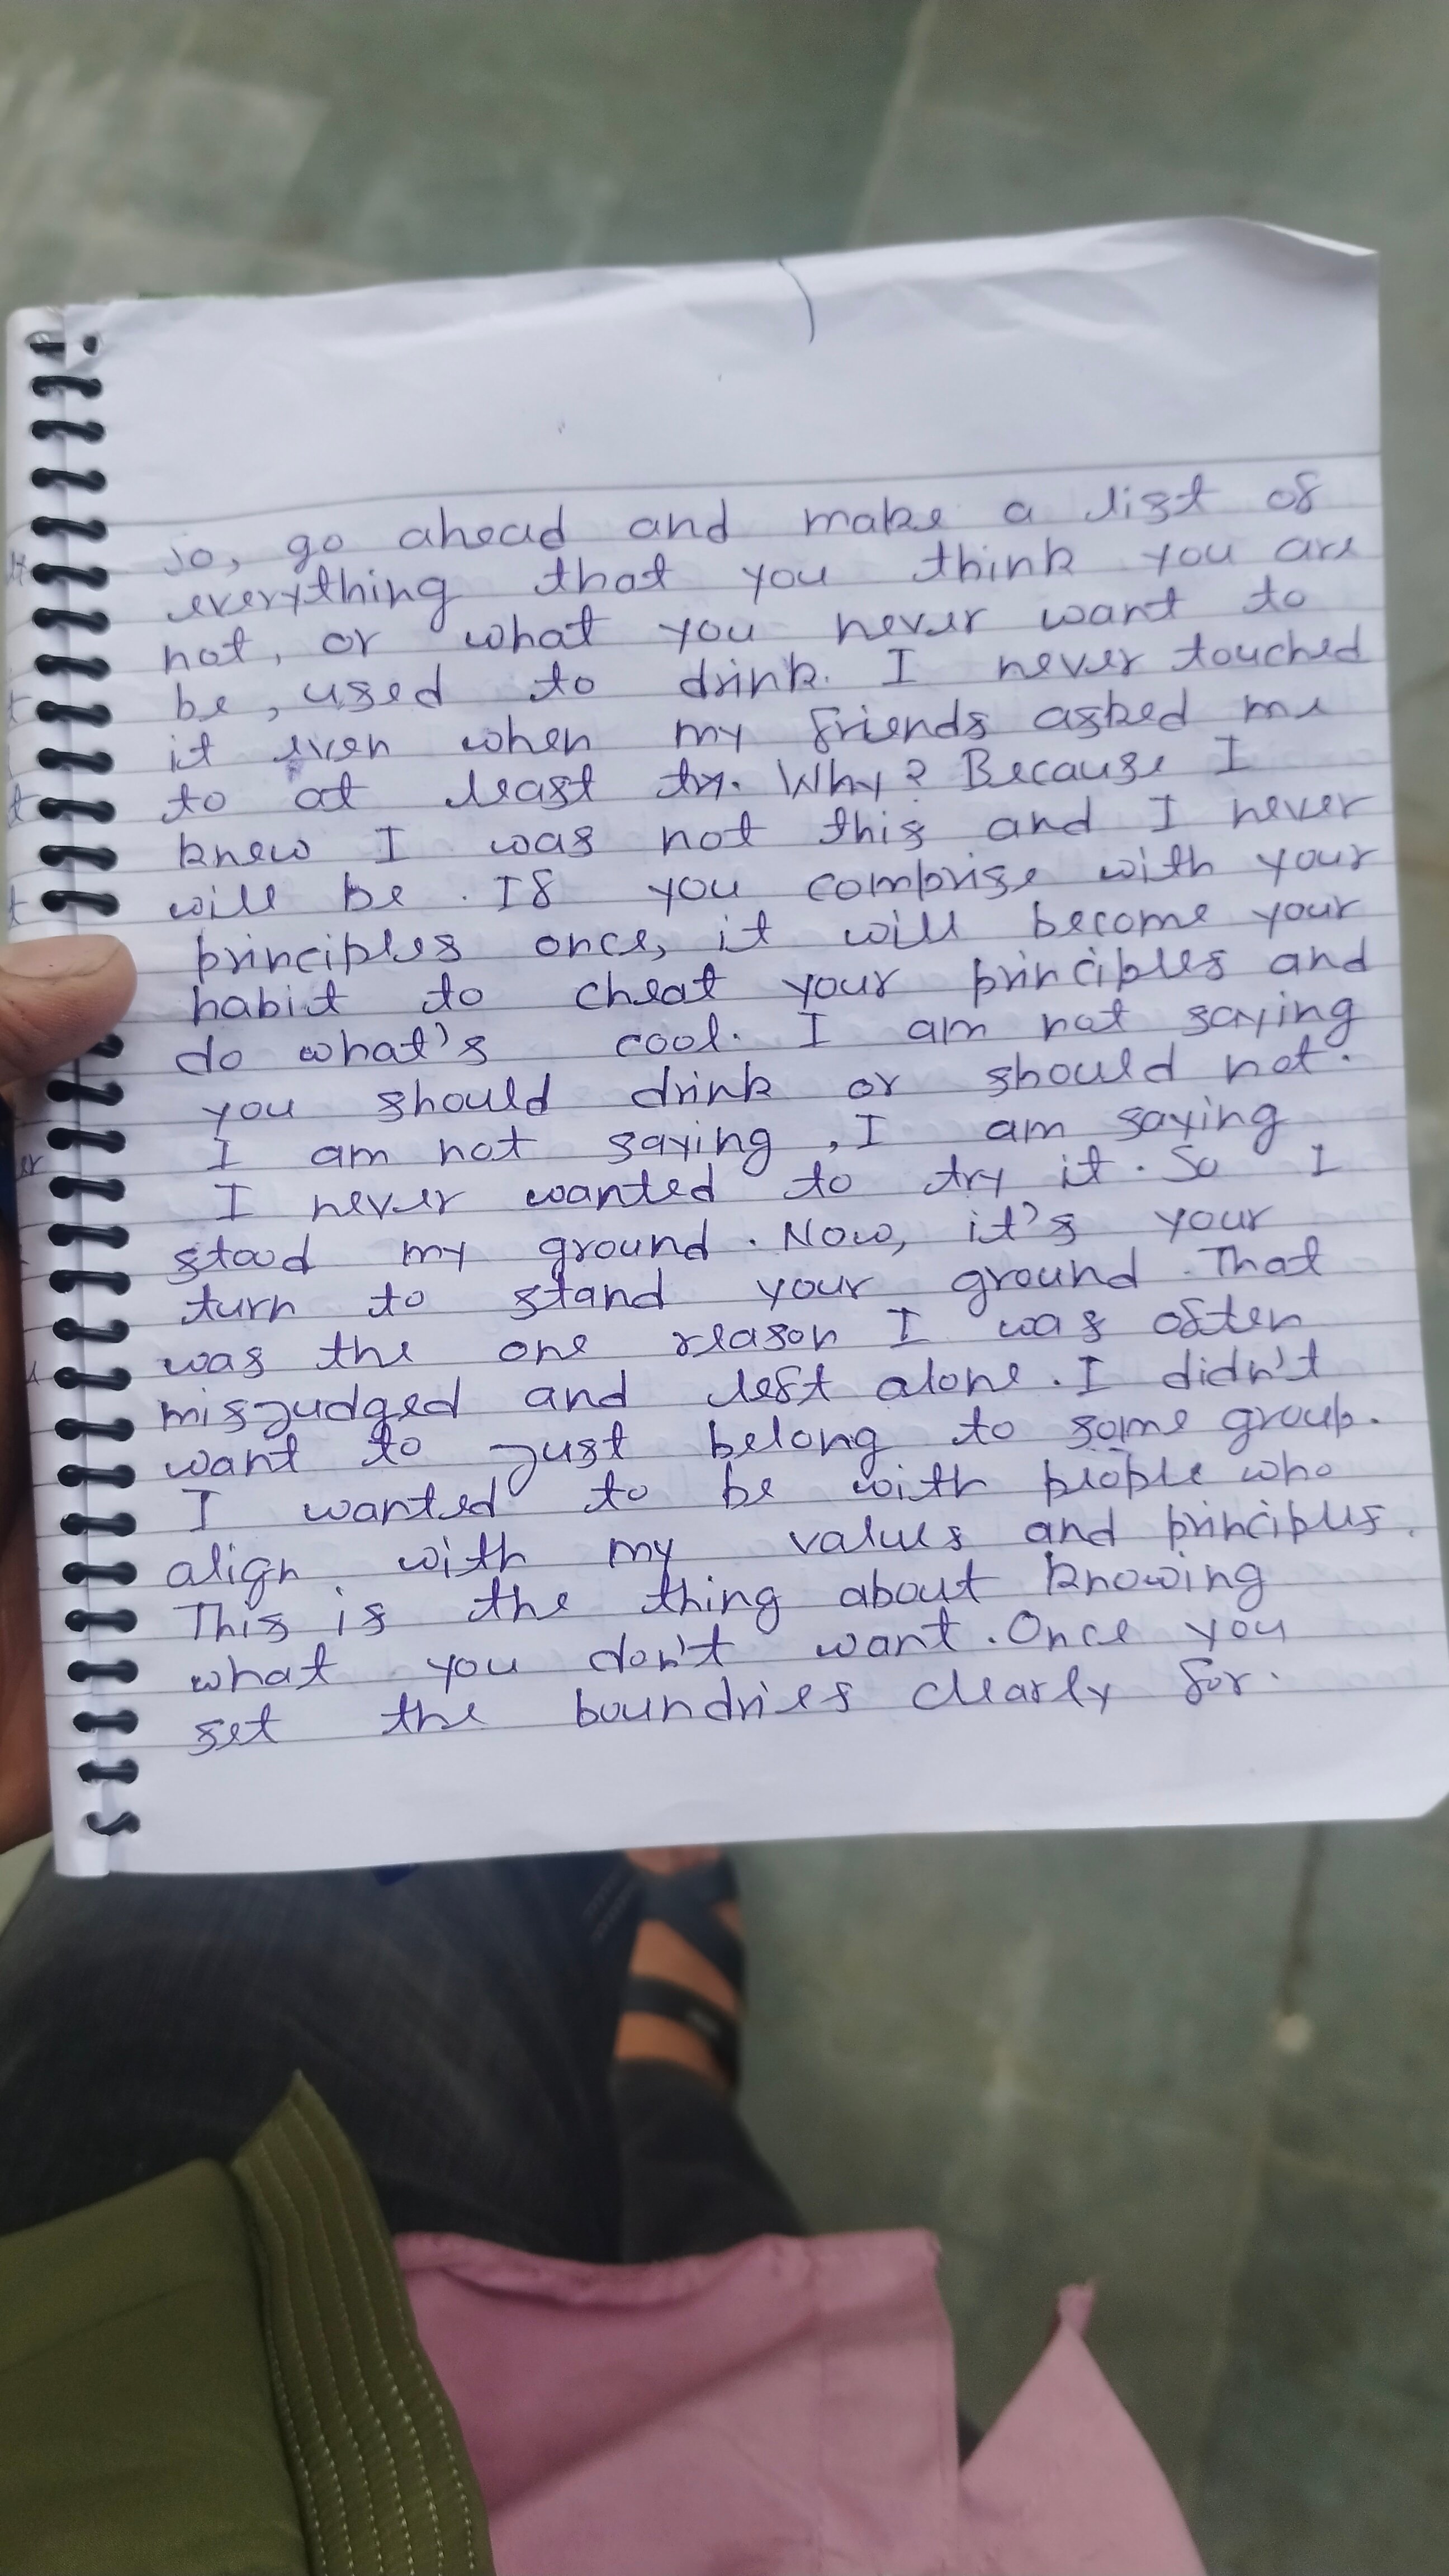 So, go ahead and make a list of
everything that you think you are
not, or what you never want to
be, used to drink. I never touched
it even when my friends asked me
to at least try. Why? Because I
knew I was not this and I never
will be. If you comprise with your
principles once, it will become your
habit to cheat your principles and
do what's cool. I am not saying
you should drink or should not.
I am not saying, I am saying
I never wanted to try it. So I
stood my ground. Now, it's your
turn to stand your ground. That
was the one reason I was often
misjudged and left alone. I didn't
want to just belong to some group.
I wanted to be with people who
align with my values and principles.
This is the thing about knowing
what you don't want. Once you
set the boundries clearly for.